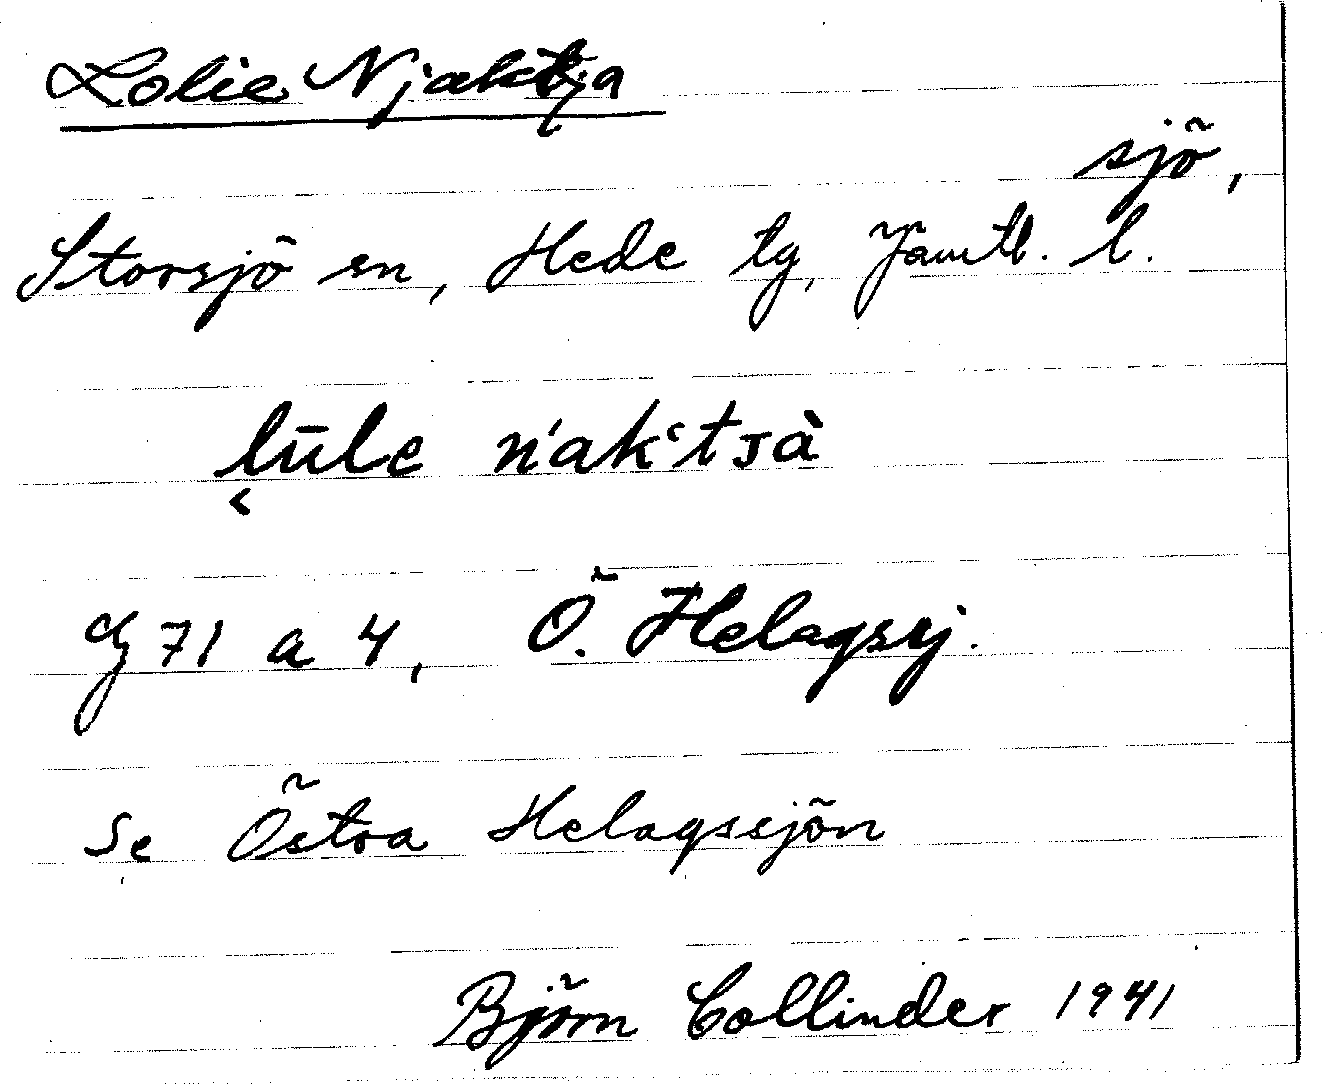 Lolie Njaktja
sjö,
Storsjö sn, Hede tg, Jämtl. l.
lūle ńakʿtsà
G 71 a 4, Ö. Helagssj.
Se Östra Helagssjön
Björn Collinder 1941